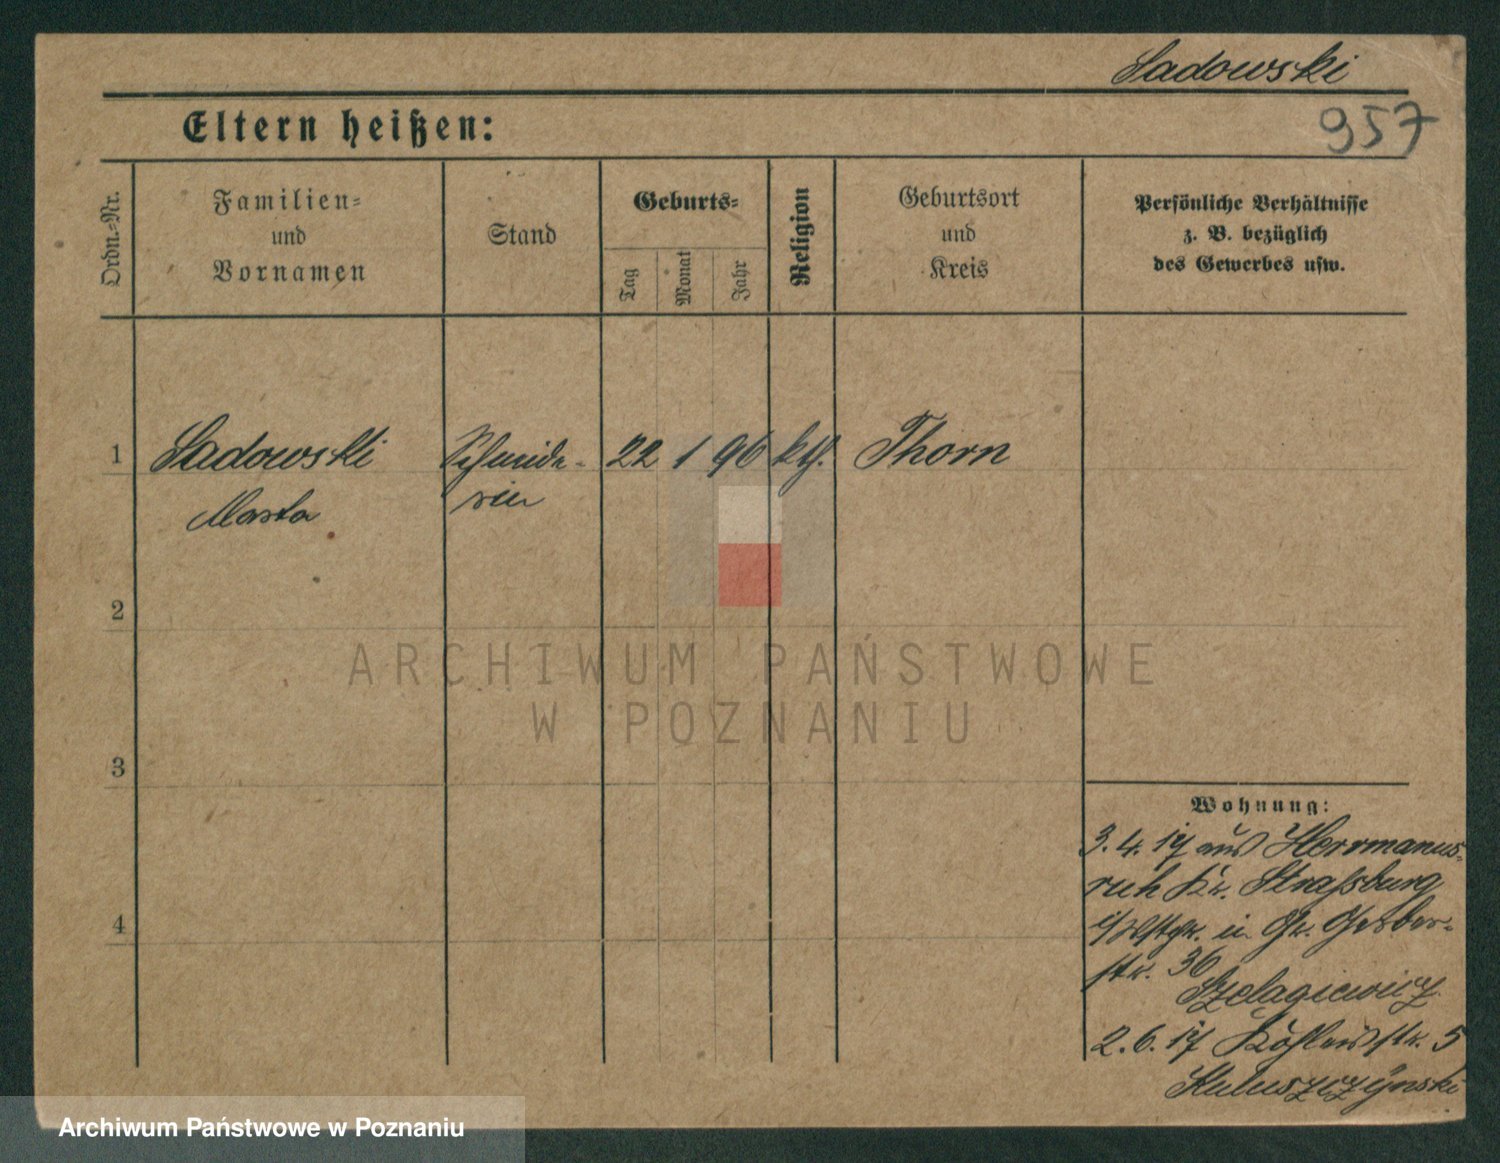 Sadowski
957
Eltern heißen:
Ordn.-Nr.
Familien-
und
Vornamen
Stand
Geburts-
Tag
Monat
Jahr
Religion
Geburtsort
und
Kreis
Persönliche Verhältnisse
z. B. bezüglich
des Gewerbes usw.
1 Sadowski Schneide- 22 1 96 kth. Thorn
Marta rin
2
3
4
Wohnung:
3. 4. 17 aus Herrmanns-
ruh Kr. Straßburg
i/Wstpr. in Gr. Gerber-
str. 36
Szelągiewicz
2. 6. 17 str. 5
ARCHIWUM PAŃSTWOWE
W POZNANIU
Archiwum Państwowe w Poznaniu